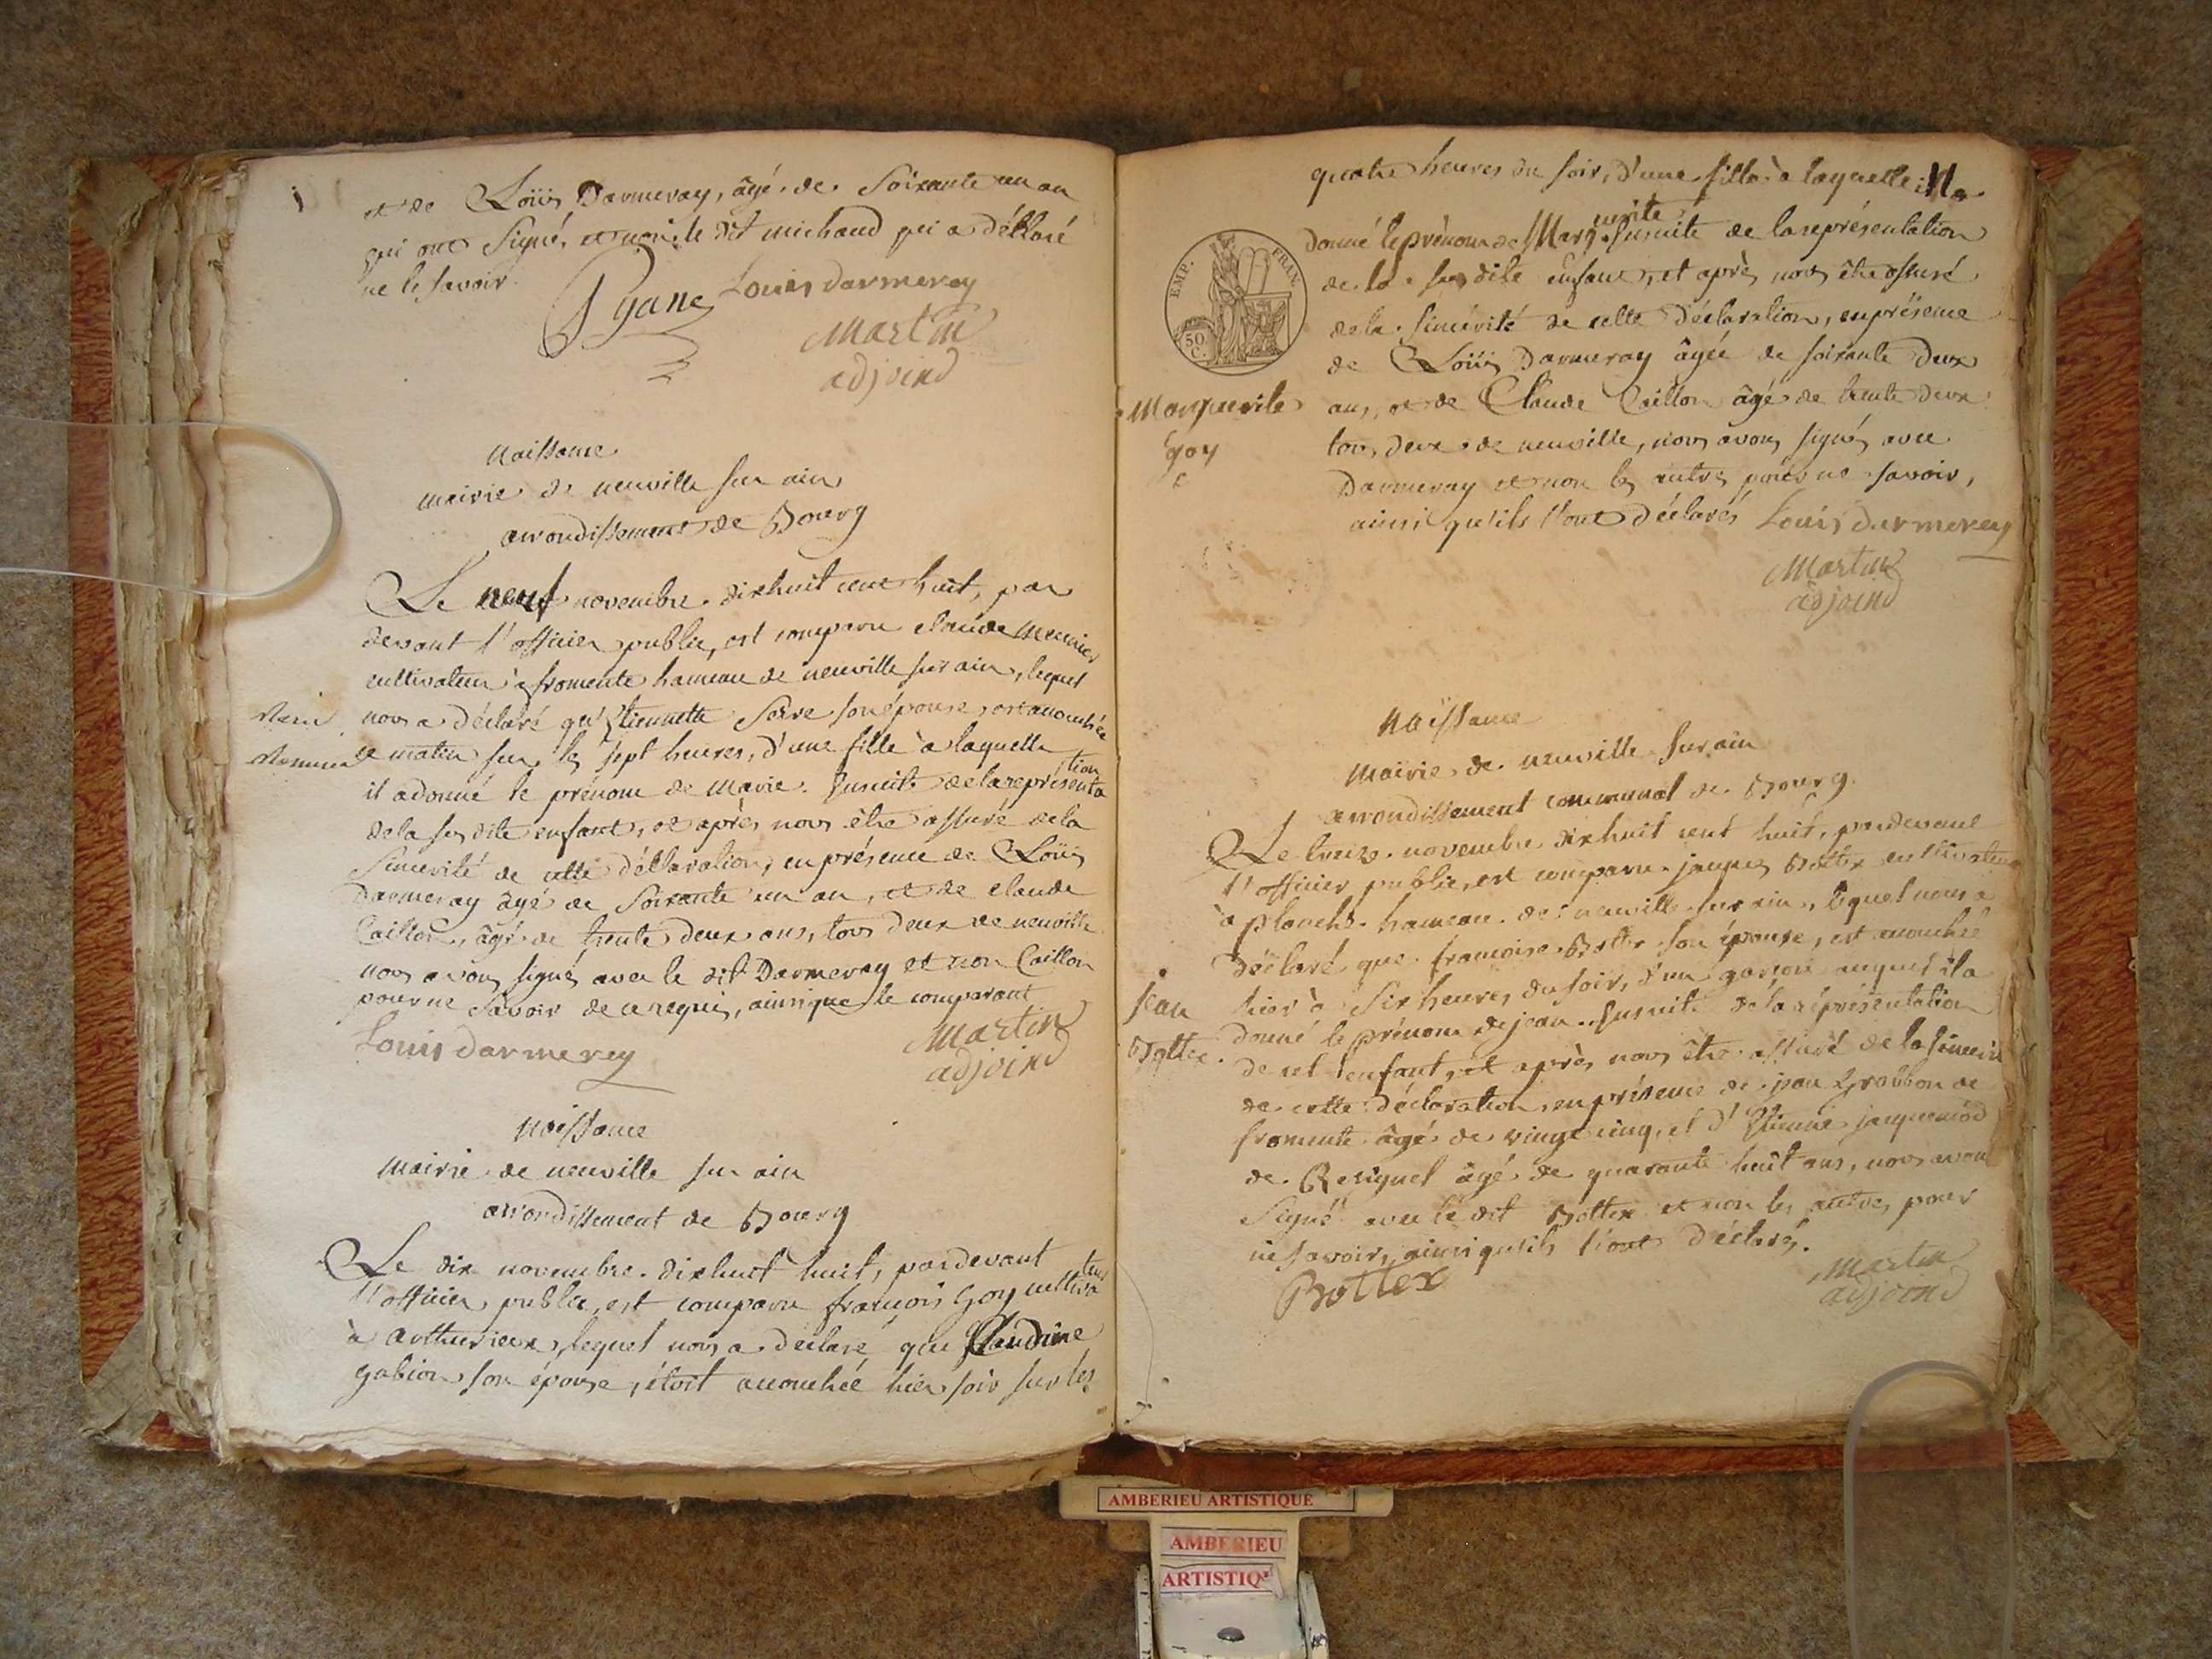 et de Loüis Darmeray, âgé de Soixante un an
qui ont Signé, et non le dit michaud qui a déclaré
ne le savoir.
Pgane Louis darmerey
Martin
adjoind
naissance
mairie de neuville sur ain
arrondissement de Bourg
Le neuf novembre dixhuit cent huit, par
devant l'officier public, est comparu claude Meunier
cultivateur à fromente hameau de neuville sur ain, lequel
nous a déclaré qu'Etiennette Serve son épouse, est accouchée
ce matin sur les sept heures, d'une fille à laquelle
il a donné le prénom de Marie. Ensuite de la représenta
tion
de la susdite enfant, et après nous être assuré de la
Sincérité de cette déclaration, en présence de Loüis
Darmeray âgé de Soixante un an, et de claude
Caillon, âgé de trente deux ans, tous deux de neuville
nous avons signés avec le dit Darmeray et non Caillon
pour ne Savoir de ce requis, ainsi que le comparant
Louis darmerey
Martin
adjoind
Marie
Meunier
naissance
mairie de neuville sur ain
arrondissement de Bourg
Le dix novembre dixhuit huit, pardevant
l'officier public, est comparu françois Goy cultiva
teur
à authurieux, lequel nous a déclaré que Claudine
gabion son épouse, étoit accouchée hier soir sur les
quatre heures du soir, d'une fille à laquelle il a
donné le prénom de Marg
uerite
Ensuite de la représentation
de la susdite enfant, et après nous être assuré
de la sincérité de cette déclaration, en présence
de Loüis Darmeray âgée de soixante deux
ans, et de Claude Caillon âgé de trente deux
tous deux de neuville, nous avons signés avec
Darmeray et non les autres pour ne savoir,
ainsi qu'ils l'ont déclarés Louis darmerey
Martin
adjoind
EMP. FRAN.
50 C.
Marguerite
Goy
naissance
Mairie de neuville sur ain
arrondissement communal de Bourg.
Le treize novembre dixhuit cent huit, pardevant
l'officier public, est comparu jacques Bottex cultivateur
à planche hameau de neuville sur ain, lequel nous a
déclaré que françoise Bottex son épouse, est accouchée
hier à Six heures du soir, d'un garçon auquel il a
donné le prénom de jean. Ensuite de la représentation
de cet enfant, et après nous être assuré de la sincérité
de cette déclaration, en présence de jean Grabbon de
fromente âgé de vingt cinq, et d'Etienne jacquemod
de Resignel âgé de quarante huit ans, nous avons
Signé avec le dit Bottex et non les autres pour
ne savoir, ainsi qu'ils l'ont déclarés.
Bottex
Martin
adjoind
jean
Bottex.
AMBERIEU ARTISTIQUE
AMBERIEU
ARTISTIQ